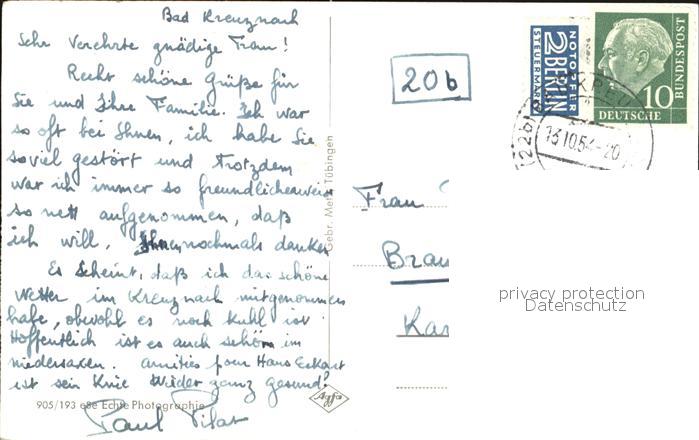 Bad Kreuznach
Sehr Verehrte gnädige Frau!
Recht schöne grüße für
Sie und Ihre Familie. Ich war
so oft bei Ihnen, ich habe Sie
soviel gestört und trotzdem
war ich immer so freundlicherweise
so nett aufgenommen, daß
ich will, Ihnen nochmals danken
Es Scheint, daß ich das schöne
Wetter im Kreuznach mitgenommen
habe, obwohl es noch kuhl ist
Hoffentlich ist es auch schön im
niedersaxen. amitiés pour Hans Eckart
ist sein Knie Wieder ganz gesund?
Paul Pilat
905/193 Echte Photographie
Agfa
Gebr. Metz Tübingen
20b
NOTOPFER
2 BERLIN
STEUERMARKE
DEUTSCHE
BUNDESPOST
10
(22b) BAD KREUZ
13.10.54-20
Frau
Brau
Kar
privacy protection
Datenschutz